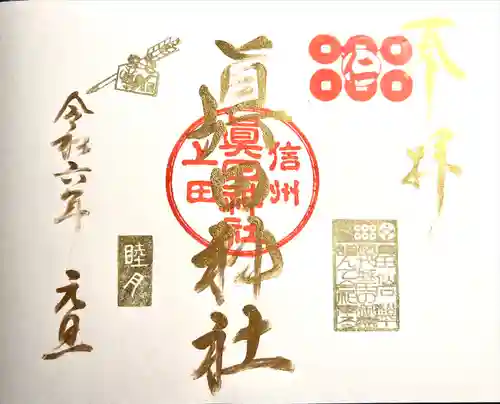 奉拝
眞田神社
信州
眞田神社
上田
令和六年 元旦
睦月